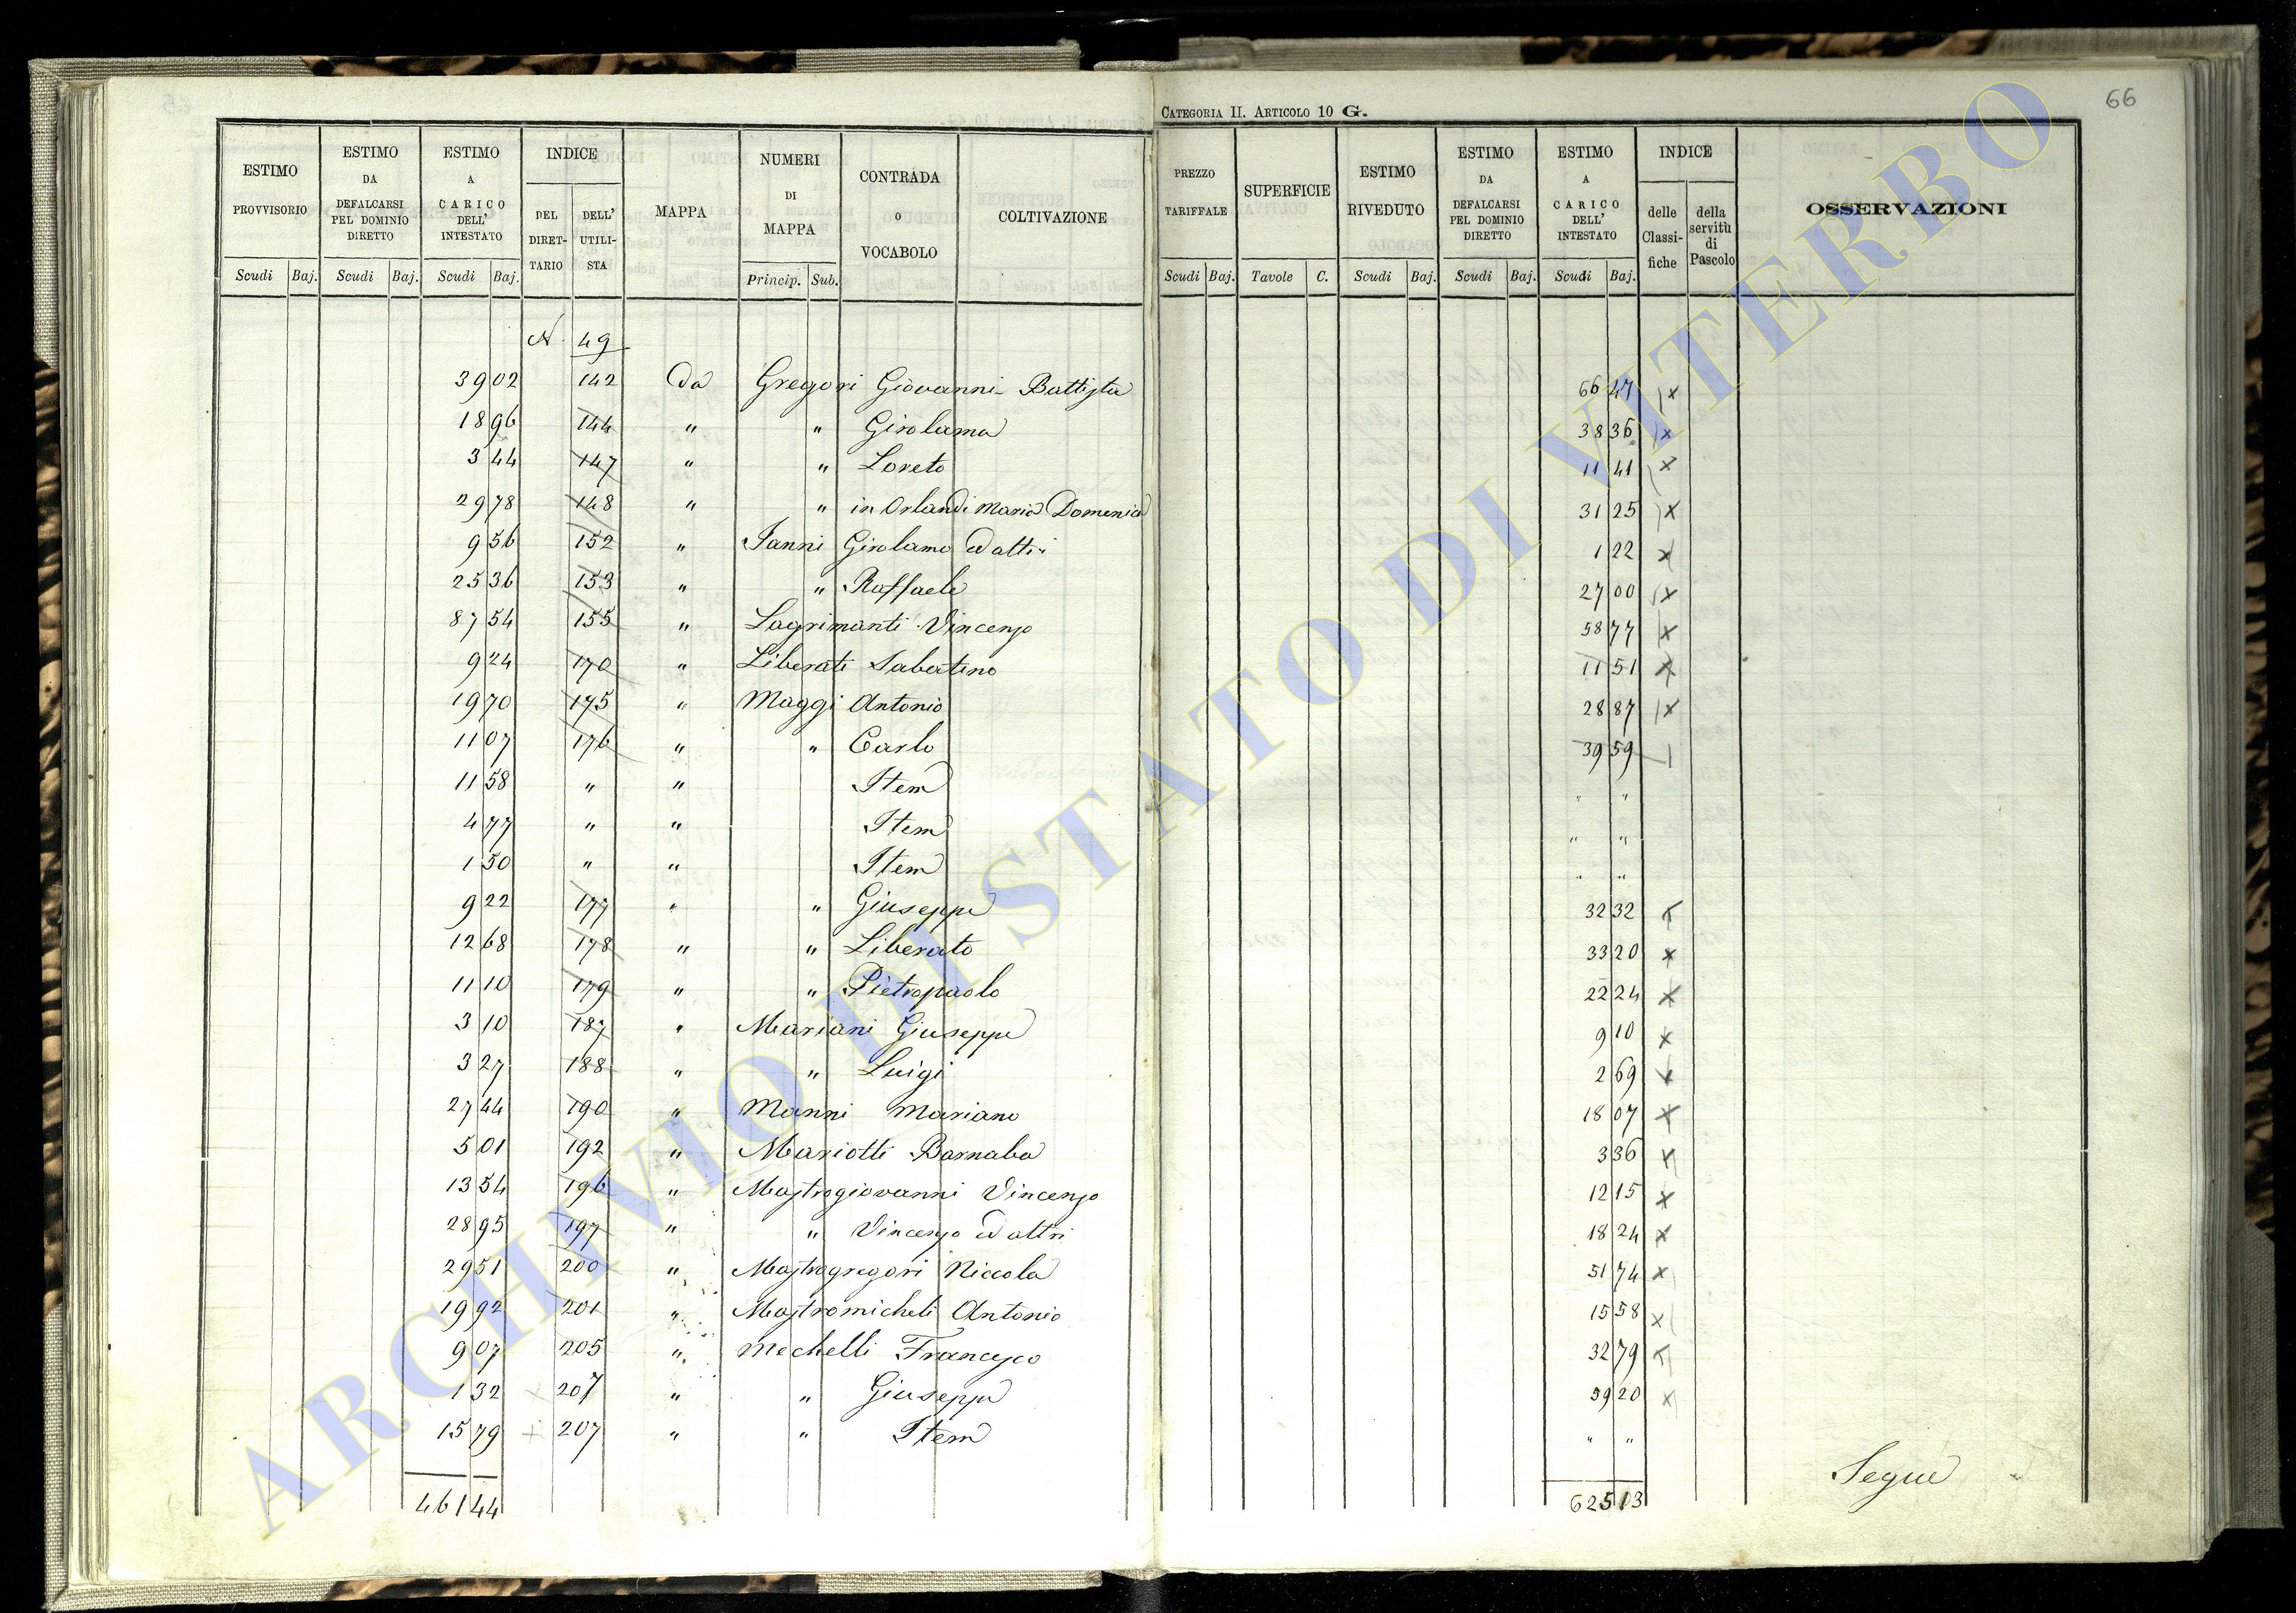 66
CATEGORIA II. ARTICOLO 10 G.
ESTIMO PROVVISORIO Scudi Baj. ESTIMO DA DEFALCARSI PEL DOMINIO DIRETTO Scudi Baj. ESTIMO A CARICO DELL' INTESTATO Scudi Baj. INDICE DEL DIRET-TARIO DELL' UTILI-STA MAPPA NUMERI DI MAPPA Princip. Sub. CONTRADA O VOCABOLO COLTIVAZIONE
PREZZO TARIFFALE Scudi Baj. SUPERFICIE Tavole C. ESTIMO RIVEDUTO Scudi Baj. ESTIMO DA DEFALCARSI PEL DOMINIO DIRETTO Scudi Baj. ESTIMO A CARICO DELL' INTESTATO Scudi Baj. INDICE delle Classi-fiche della servitù di Pascolo OSSERVAZIONI
N. 49
39 02 142 Da Gregori Giovanni-Battista 66 47 x
18 96 144 " " Girolama 38 36 x
3 44 147 " " Loreto 11 41 x
29 78 148 " " in Orlandi Maria Domenica 31 25 x
9 56 152 " Ianni Girolamo ed altri 1 22 x
25 36 153 " " Raffaele 27 00 x
87 54 155 " Lagrimanti Vincenzo 58 77 x
9 24 170 " Liberati Sabatino 11 51 x
19 70 175 " Maggi Antonio 28 87 x
11 07 176 " " Carlo 39 59
11 58 " " Item " "
4 77 " " Item " "
1 50 " " Item " "
9 22 177 " " Giuseppe 32 32 x
12 68 178 " " Liberato 33 20 x
11 10 179 " " Pietropaolo 22 24 x
3 10 187 " Mariani Giuseppe 9 10 x
3 27 188 " " Luigi 2 69 x
27 44 190 " Manni Mariano 18 07 x
5 01 192 " Mariotti Barnaba 3 36 x
13 54 196 " Mastrogiovanni Vincenzo 12 15 x
28 95 197 " " Vincenzo ed altri 18 24 x
29 51 200 " Mastrogregori Niccola 51 74 x
19 92 201 " Mastromicheli Antonio 15 58 x
9 07 205 " Mechelli Francesco 32 79 x
1 32 x 207 " " Giuseppe 59 20 x
15 79 + 207 " " Item " "
461 44 625 13
Segue
ARCHIVIO DI STATO DI VITERBO